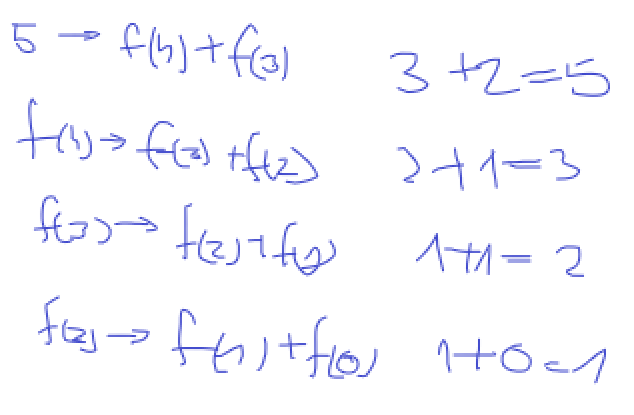 5 → f(4)+f(3) 3+2=5
f(4) → f(3)+f(2) 2+1=3
f(3) → f(2)+f(1) 1+1=2
f(2) → f(1)+f(0) 1+0=1